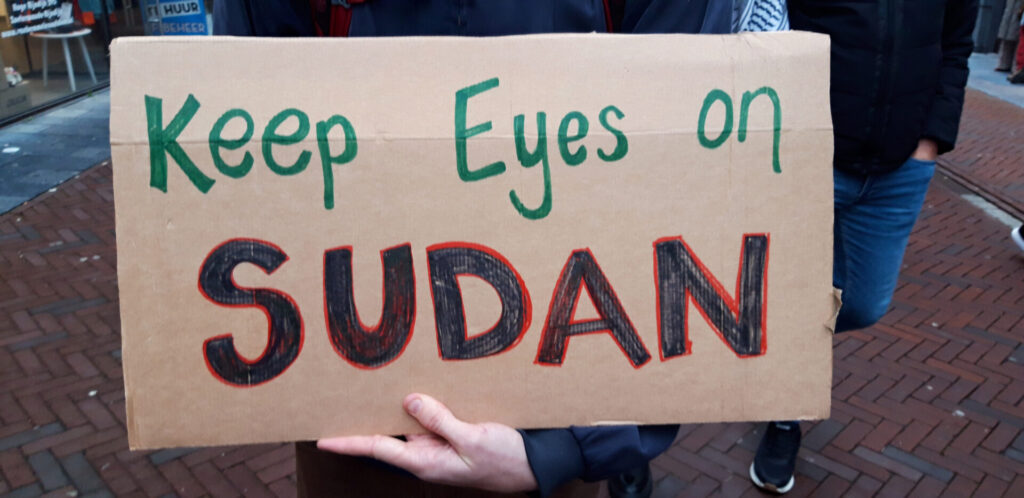 Keep Eyes on
SUDAN
HUUR
BEHEER